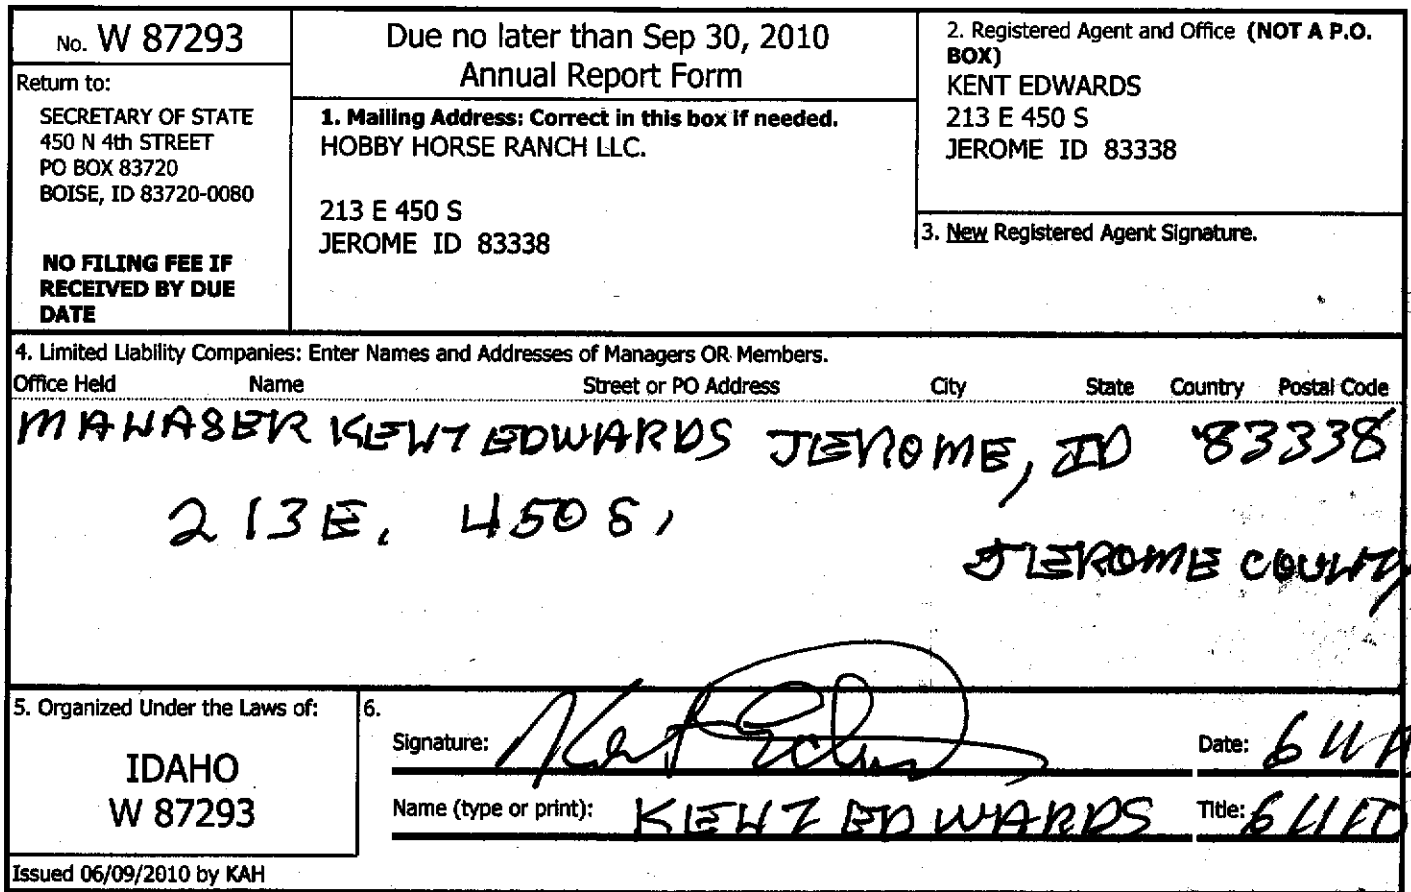 No. W 87293
Return to:
SECRETARY OF STATE
450 N 4th STREET
PO BOX 83720
BOISE, ID 83720-0080
NO FILING FEE IF
RECEIVED BY DUE
DATE
Due no later than Sep 30, 2010
Annual Report Form
1. Mailing Address: Correct in this box if needed.
HOBBY HORSE RANCH LLC.
213 E 450 S
JEROME ID 83338
2. Registered Agent and Office (NOT A P.O.
BOX)
KENT EDWARDS
213 E 450 S
JEROME ID 83338
3. New Registered Agent Signature.
4. Limited Liability Companies: Enter Names and Addresses of Managers OR Members.
Office Held Name Street or PO Address City State Country Postal Code
MANAGER KENT EDWARDS JEROME, ID 83338
213 E. 450 S,
JEROME COUNTY
5. Organized Under the Laws of:
IDAHO
W 87293
6.
Signature: Kent Edwards
Date:
Name (type or print): KENT EDWARDS
Title:
Issued 06/09/2010 by KAH